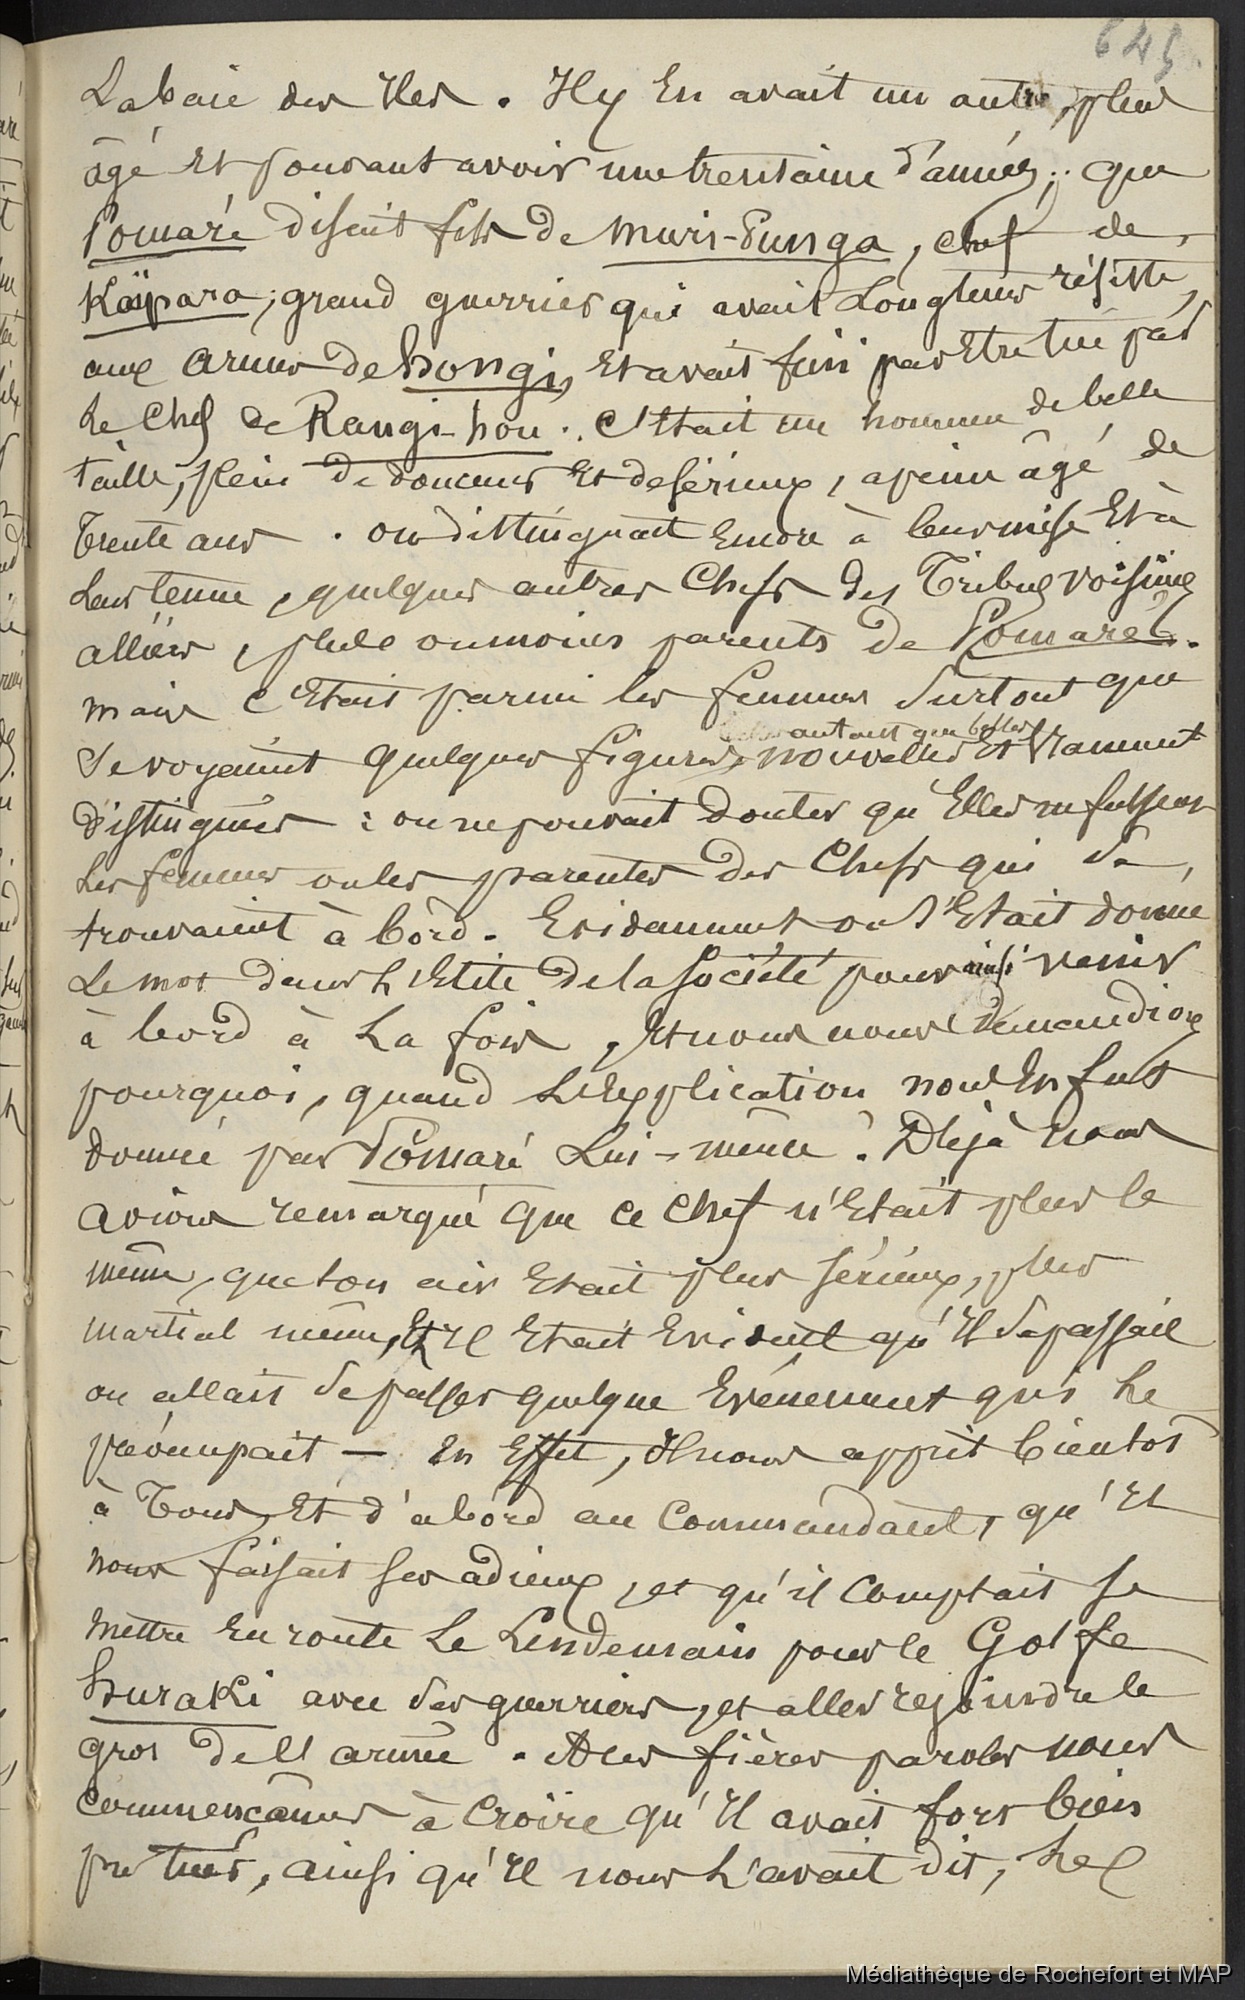 645.
La baie des Iles. Il y en avait un autre, plus
âgé et pouvant avoir une trentaine d'années; que
Pomaré disait fils de Muri-Punga, chef de
Käipara, grand guerrier qui avait longtems résisté
aux armes de Hongi, et avait fini par être tué par
le chef de Rangi-hou. C'était un homme de belle
taille, plein de douceur et de sérieux, à peine âgé de
trente ans. on distinguait encore à leur mise et à
leur tenue, quelques autres chefs des Tribus voisines
alliées, plus ou moins parents de Pomaré.
mais c'était parmi les femmes surtout que
autant que belles
se voyaient quelques figures nouvelles et vraiment
distinguées : on ne pouvait douter qu'elles ne fussent
les femmes ou les parentes des chefs qui se
trouvaient à bord. Evidemment on s'était donné
le mot dans l'élite de la société pour ainsi venir
à bord à la fois, et nous nous demandions
pourquoi, quand l'explication nous en fut
donnée par Pomaré lui-même. Déjà nous
avions remarqué que ce chef n'était plus le
même, que son air était plus sérieux, plus
martial même, et il était evident qu'il se passait
ou allait se passer quelque événement qui le
préoccupait — En effet, il nous apprit bientôt
à tous, et d'abord au Commandant, qu'il
nous faisait ses adieux, et qu'il comptait se
mettre en route le lendemain pour le Golfe
Huraki avec ses guerriers, et aller rejoindre le
gros de l'armée. A ces fières paroles nous
commençâmes à croire qu'il avait fort bien
pu tuer, ainsi qu'il nous l'avait dit, les
Médiathèque de Rochefort et MAP